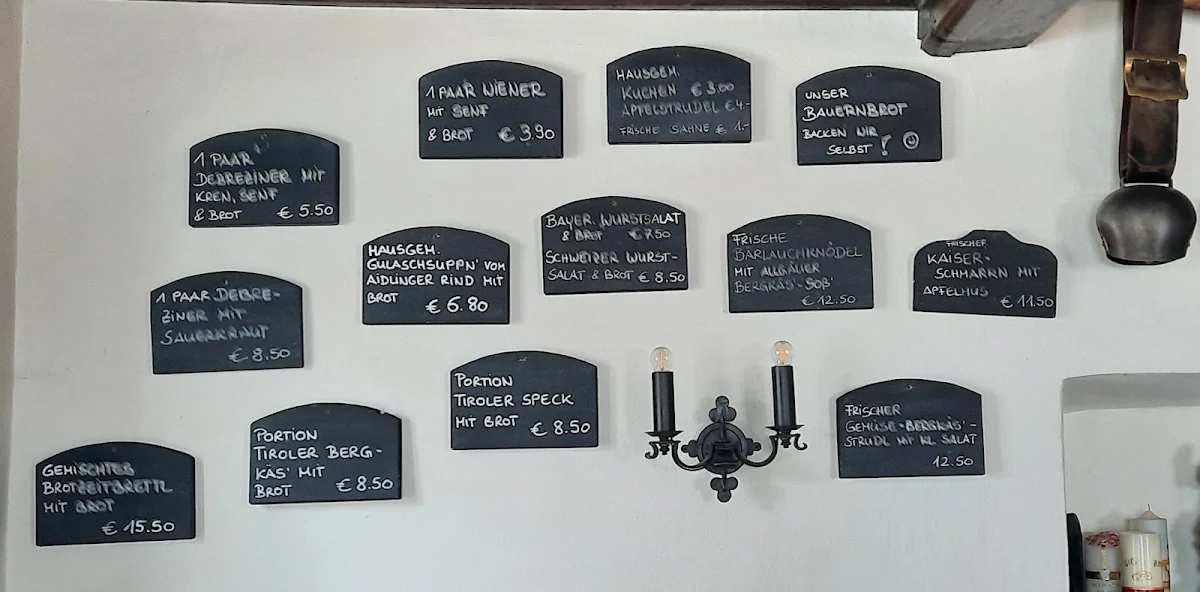 1 PAAR WIENER
MIT SENF
& BROT € 3.90
HAUSGEM.
KUCHEN € 3.00
APFELSTRUDEL € 4.-
FRISCHE SAHNE € 1.-
UNSER
BAUERNBROT
BACKEN WIR
SELBST !
1 PAAR
DEBREZINER MIT
KREN, SENF
& BROT € 5.50
HAUSGEM.
GULASCHSUPPN' VOM
AIDLINGER RIND MIT
BROT € 6.80
BAYER. WURSTSALAT
& BROT € 7.50
SCHWEIZER WURST-
SALAT & BROT € 8.50
FRISCHE
BÄRLAUCHKNÖDEL
MIT ALLGÄUER
BERGKÄS'-SOẞ'
€ 12.50
FRISCHER
KAISER-
SCHMARRN MIT
APFELMUS € 11.50
1 PAAR DEBRE-
ZINER MIT
SAUERKRAUT
€ 8.50
PORTION
TIROLER SPECK
MIT BROT € 8.50
FRISCHER
GEMÜSE-BERGKÄS'-
STRUDL MIT KL. SALAT
12.50
PORTION
TIROLER BERG-
KÄS' MIT
BROT € 8.50
GEMISCHTES
BROTZEITBRETTL
MIT BROT
€ 15.50